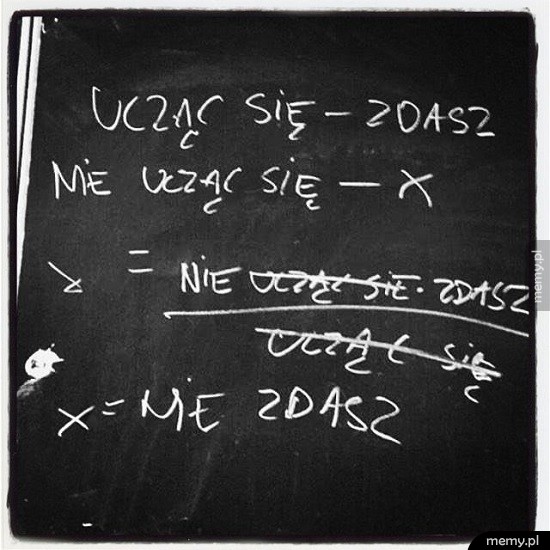 UCZĄC SIĘ – ZDASZ
NIE UCZĄC SIĘ – X
X = NIE UCZĄC SIĘ · ZDASZ
UCZĄC SIĘ
X = NIE ZDASZ
memy.pl
memy.pl